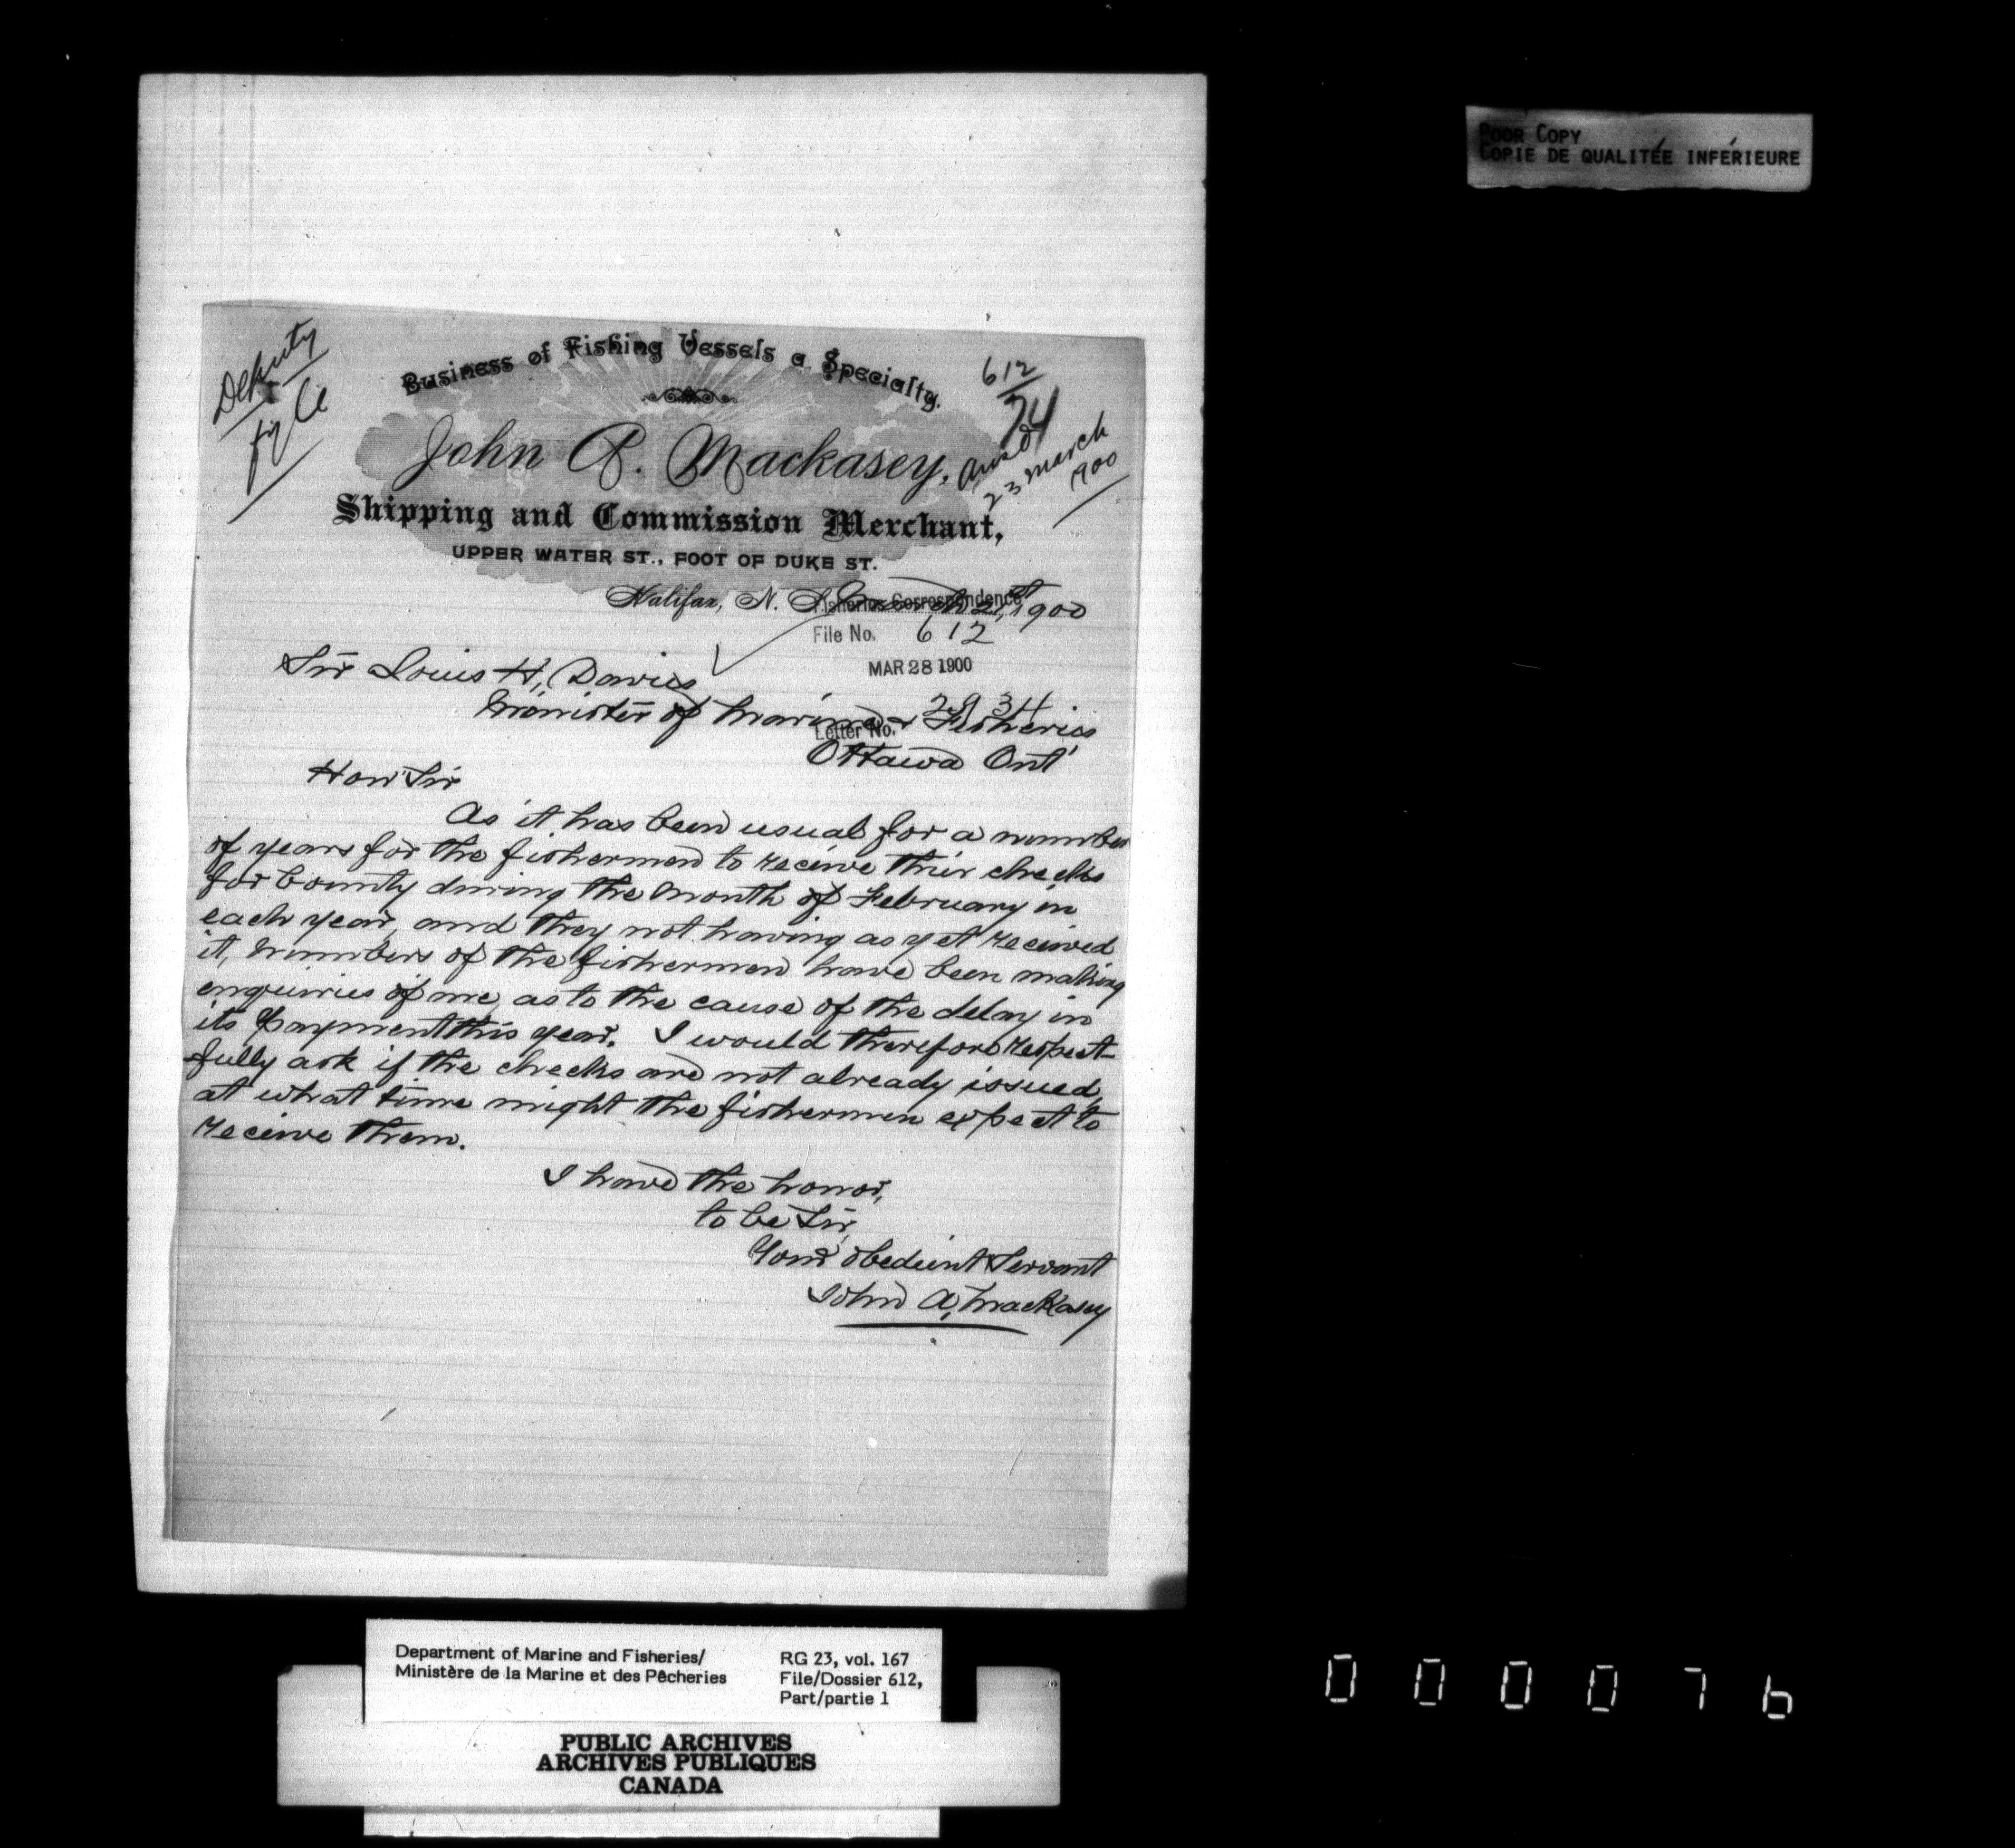 POOR COPY
COPIE DE QUALITÉE INFÉRIEURE
Deputy
file
612
74
Ansd
23 March
1900
Business of Fishing Vessels a Specialty.
John A. Mackasey,
Shipping and Commission Merchant,
UPPER WATER ST., FOOT OF DUKE ST.
Halifax, N. S. March 21st 1900
Fisheries Correspondence
File No. 612
MAR 28 1900
2934
Letter No.
Sir Louis H, Davies
Minister of Marine & Fisheries
Ottawa Ont
Hon Sir
As it has been usual for a number
of years for the fishermen to receive their checks
for bounty during the month of February in
each year, and they not having as yet received
it, numbers of the fishermen have been making
enquiries of me, as to the cause of the delay in
its payment this year. I would therefore respect-
fully ask if the checks are not already issued,
at what time might the fishermen expect to
receive them.
I have the honor,
to be Sir,
Your obedient Servant
John A, Mackasey
Department of Marine and Fisheries/
Ministère de la Marine et des Pêcheries
RG 23, vol. 167
File/Dossier 612,
Part/partie 1
PUBLIC ARCHIVES
ARCHIVES PUBLIQUES
CANADA
000076